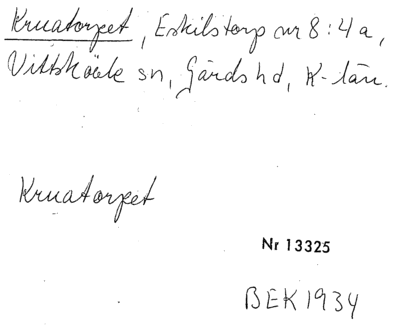 Kruatorpet, Eskilstorp nr 8:4a,
Vittskövle sn, Gärds hd, K-län.
Kruatorpet
Nr 13325
BEK 1934